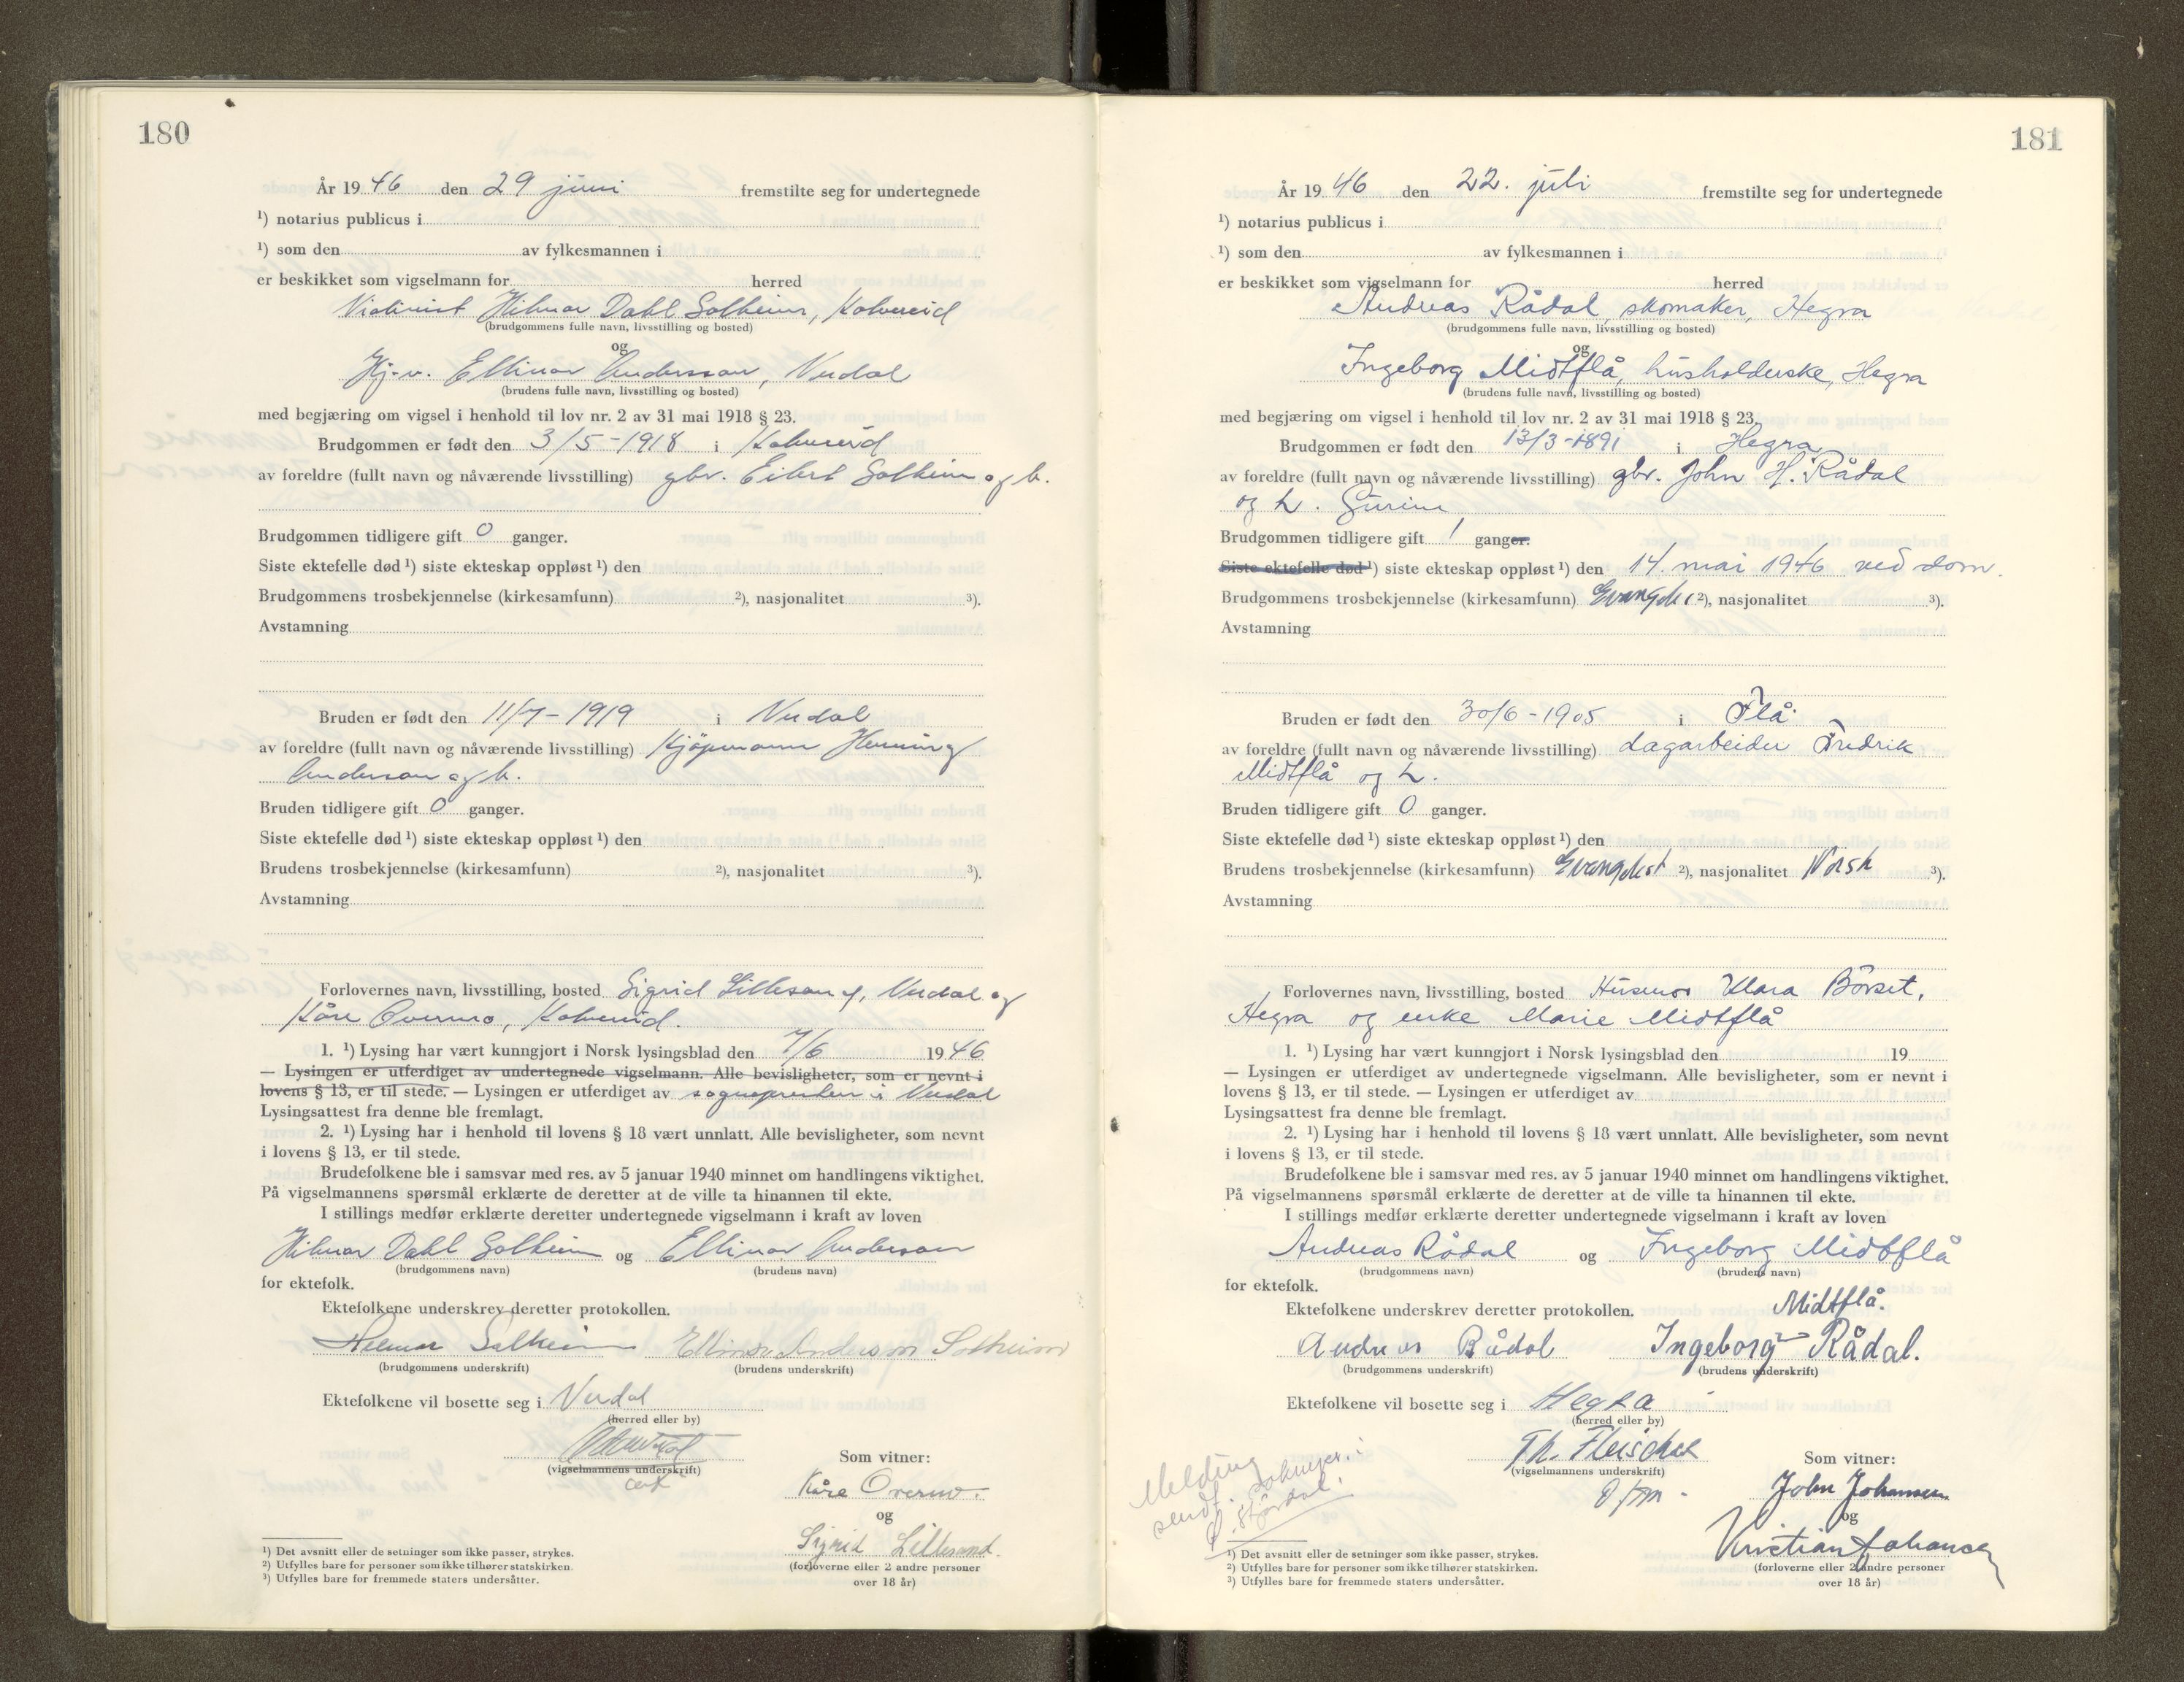 180
År 1946 den 29 juni fremstilte seg for undertegnede
¹) notarius publicus i
¹) som den av fylkesmannen i
er beskikket som vigselmann for herred
Hilmar Dahl Solheim, Kolvereid
(brudgommens fulle navn, livsstilling og bosted)
og
Hj.v. Ellinor Anderssen, Verdal
(brudens fulle navn, livsstilling og bosted)
med begjæring om vigsel i henhold til lov nr. 2 av 31 mai 1918 § 23.
Brudgommen er født den 3/5-1918 i Kolvereid
av foreldre (fullt navn og nåværende livsstilling) gbr. Eilert Solheim og h.
Brudgommen tidligere gift 0 ganger.
Siste ektefelle død ¹) siste ekteskap oppløst ¹) den
Brudgommens trosbekjennelse (kirkesamfunn) ²), nasjonalitet ³).
Avstamning
Bruden er født den 11/7-1919 i Verdal
av foreldre (fullt navn og nåværende livsstilling) Kjöpmann Henning
Anderson og h.
Bruden tidligere gift 0 ganger.
Siste ektefelle død ¹) siste ekteskap oppløst ¹) den
Brudens trosbekjennelse (kirkesamfunn) ²), nasjonalitet ³).
Avstamning
Forlovernes navn, livsstilling, bosted Sigrid Lillesand, Verdal og
Kåre Overmo, Kolvereid.
1. ¹) Lysing har vært kunngjort i Norsk lysingsblad den 7/6 1946
— Lysingen er utferdiget av undertegnede vigselmann. Alle bevisligheter, som er nevnt i
lovens § 13, er til stede. — Lysingen er utferdiget av sognepresten i Verdal
Lysingsattest fra denne ble fremlagt.
2. ¹) Lysing har i henhold til lovens § 18 vært unnlatt. Alle bevisligheter, som nevnt
i lovens § 13, er til stede.
Brudefolkene ble i samsvar med res. av 5 januar 1940 minnet om handlingens viktighet.
På vigselmannens spørsmål erklærte de deretter at de ville ta hinannen til ekte.
I stillings medfør erklærte deretter undertegnede vigselmann i kraft av loven
Hilmar Dahl Solheim og Ellinor Anderson
(brudgommens navn) (brudens navn)
for ektefolk.
Ektefolkene underskrev deretter protokollen.
Hilmar Solheim Ellinor Anderson Solheim
(brudgommens underskrift) (brudens underskrift)
Ektefolkene vil bosette seg i Verdal
(herred eller by)
(vigselmannens underskrift)
Som vitner:
Kåre Overmo.
og
Sigrid Lillesand.
(forloverne eller 2 andre personer
over 18 år)
¹) Det avsnitt eller de setninger som ikke passer, strykes.
²) Utfylles bare for personer som ikke tilhører statskirken.
³) Utfylles bare for fremmede staters undersåtter.
181
År 1946 den 22. juli fremstilte seg for undertegnede
¹) notarius publicus i
¹) som den av fylkesmannen i
er beskikket som vigselmann for herred
Andreas Rådal, skomaker, Hegra
(brudgommens fulle navn, livsstilling og bosted)
og
Ingeborg Midtflå, husholderske, Hegra
(brudens fulle navn, livsstilling og bosted)
med begjæring om vigsel i henhold til lov nr. 2 av 31 mai 1918 § 23.
Brudgommen er født den 13/3-1891 i Hegra
av foreldre (fullt navn og nåværende livsstilling) gbr. John H. Rådal
og h. Gurine
Brudgommen tidligere gift 1 ganger.
Siste ektefelle død ¹) siste ekteskap oppløst ¹) den 14. mai 1946 ved dom.
Brudgommens trosbekjennelse (kirkesamfunn) ²), nasjonalitet ³).
Avstamning
Bruden er født den 30/6-1905 i Flå.
av foreldre (fullt navn og nåværende livsstilling) dagarbeider Fredrik
Midtflå og h.
Bruden tidligere gift 0 ganger.
Siste ektefelle død ¹) siste ekteskap oppløst ¹) den
Brudens trosbekjennelse (kirkesamfunn) Evangelist ²), nasjonalitet Norsk ³).
Avstamning
Forlovernes navn, livsstilling, bosted Husmor Klara Börset,
Hegra og enke Marie Midtflå
1. ¹) Lysing har vært kunngjort i Norsk lysingsblad den 19
— Lysingen er utferdiget av undertegnede vigselmann. Alle bevisligheter, som er nevnt i
lovens § 13, er til stede. — Lysingen er utferdiget av
Lysingsattest fra denne ble fremlagt.
2. ¹) Lysing har i henhold til lovens § 18 vært unnlatt. Alle bevisligheter, som nevnt
i lovens § 13, er til stede.
Brudefolkene ble i samsvar med res. av 5 januar 1940 minnet om handlingens viktighet.
På vigselmannens spørsmål erklærte de deretter at de ville ta hinannen til ekte.
I stillings medfør erklærte deretter undertegnede vigselmann i kraft av loven
Andreas Rådal og Ingeborg Midtflå
(brudgommens navn) (brudens navn)
for ektefolk.
Ektefolkene underskrev deretter protokollen. Midtflå.
Andreas Rådal Ingeborg Rådal.
(brudgommens underskrift) (brudens underskrift)
Ektefolkene vil bosette seg i Hegra
(herred eller by)
Th. Fleischer
(vigselmannens underskrift)
Som vitner:
John Johansen
og
Kristian Johansen
(forloverne eller 2 andre personer
over 18 år)
Melding
sendt sokneprest i
Stjørdal.
¹) Det avsnitt eller de setninger som ikke passer, strykes.
²) Utfylles bare for personer som ikke tilhører statskirken.
³) Utfylles bare for fremmede staters undersåtter.